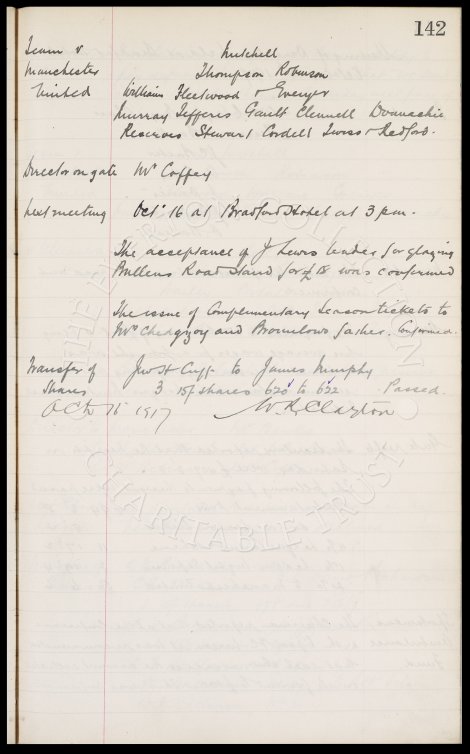 142
Team v Mitchell
Manchester Thompson Robinson
United Williams Fleetwood &
Murray Jefferis Gault Clennell Donnachie
Reserves Stewart Cordell & Redford.
Director on gate Mr Coffey
Next meeting Oct 16 at Bradford Hotel at 3 pm.
The acceptance of J Lewis tender for glazing
Bullens Road Stand for £18 was confirmed
The issue of Complimentary Season tickets to
Mr Chedgzoy and Brownlows father. Confirmed.
Transfer of Cuff to James Murphy
Shares 3 15/ shares 620 to 622 Passed.
Oct 1917 W.R. Clayton
THE EVERTON COLLECTION
CHARITABLE TRUST